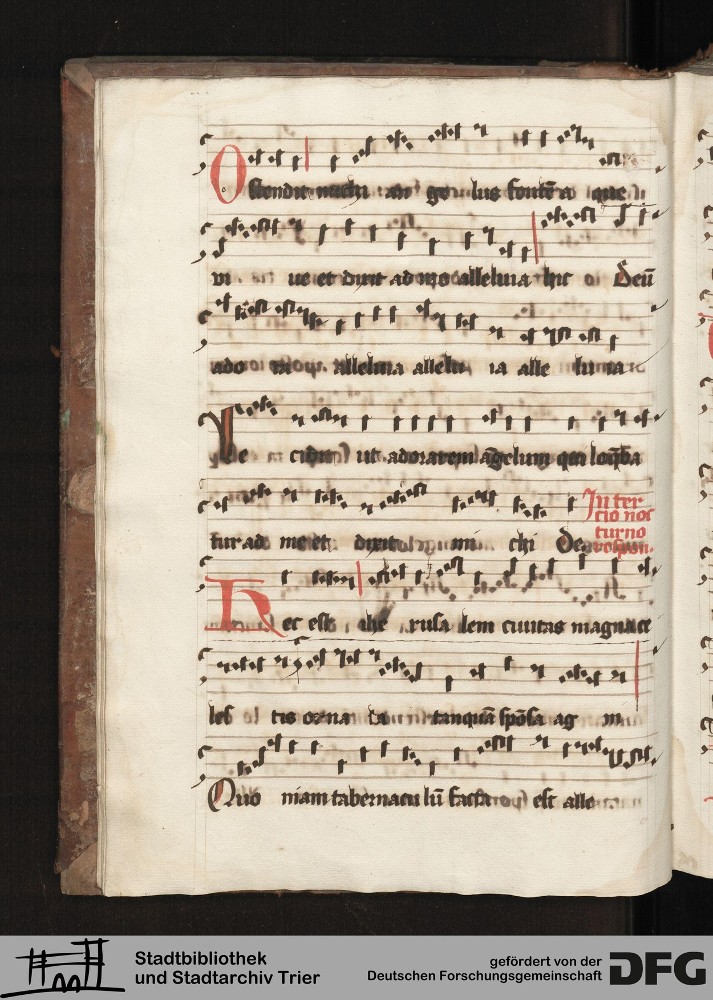 Ostendit michi an ge lus fontē a que
vi ue et dixit ad me alleluia hic Deū
ado alleluia allelu ia alle luia
Ce cidi ut adorarem āgelum qui loq̄ba
tur ad me et dixit mi chi De
In ter
cio noc
turno
Hec est ihe rusa lem ciuitas magna ce
les tis orna ta tanquā spōsa ag ni
Quo niam tabernacu lū facta est alle
Stadtbibliothek
und Stadtarchiv Trier
gefördert von der
Deutschen Forschungsgemeinschaft
DFG